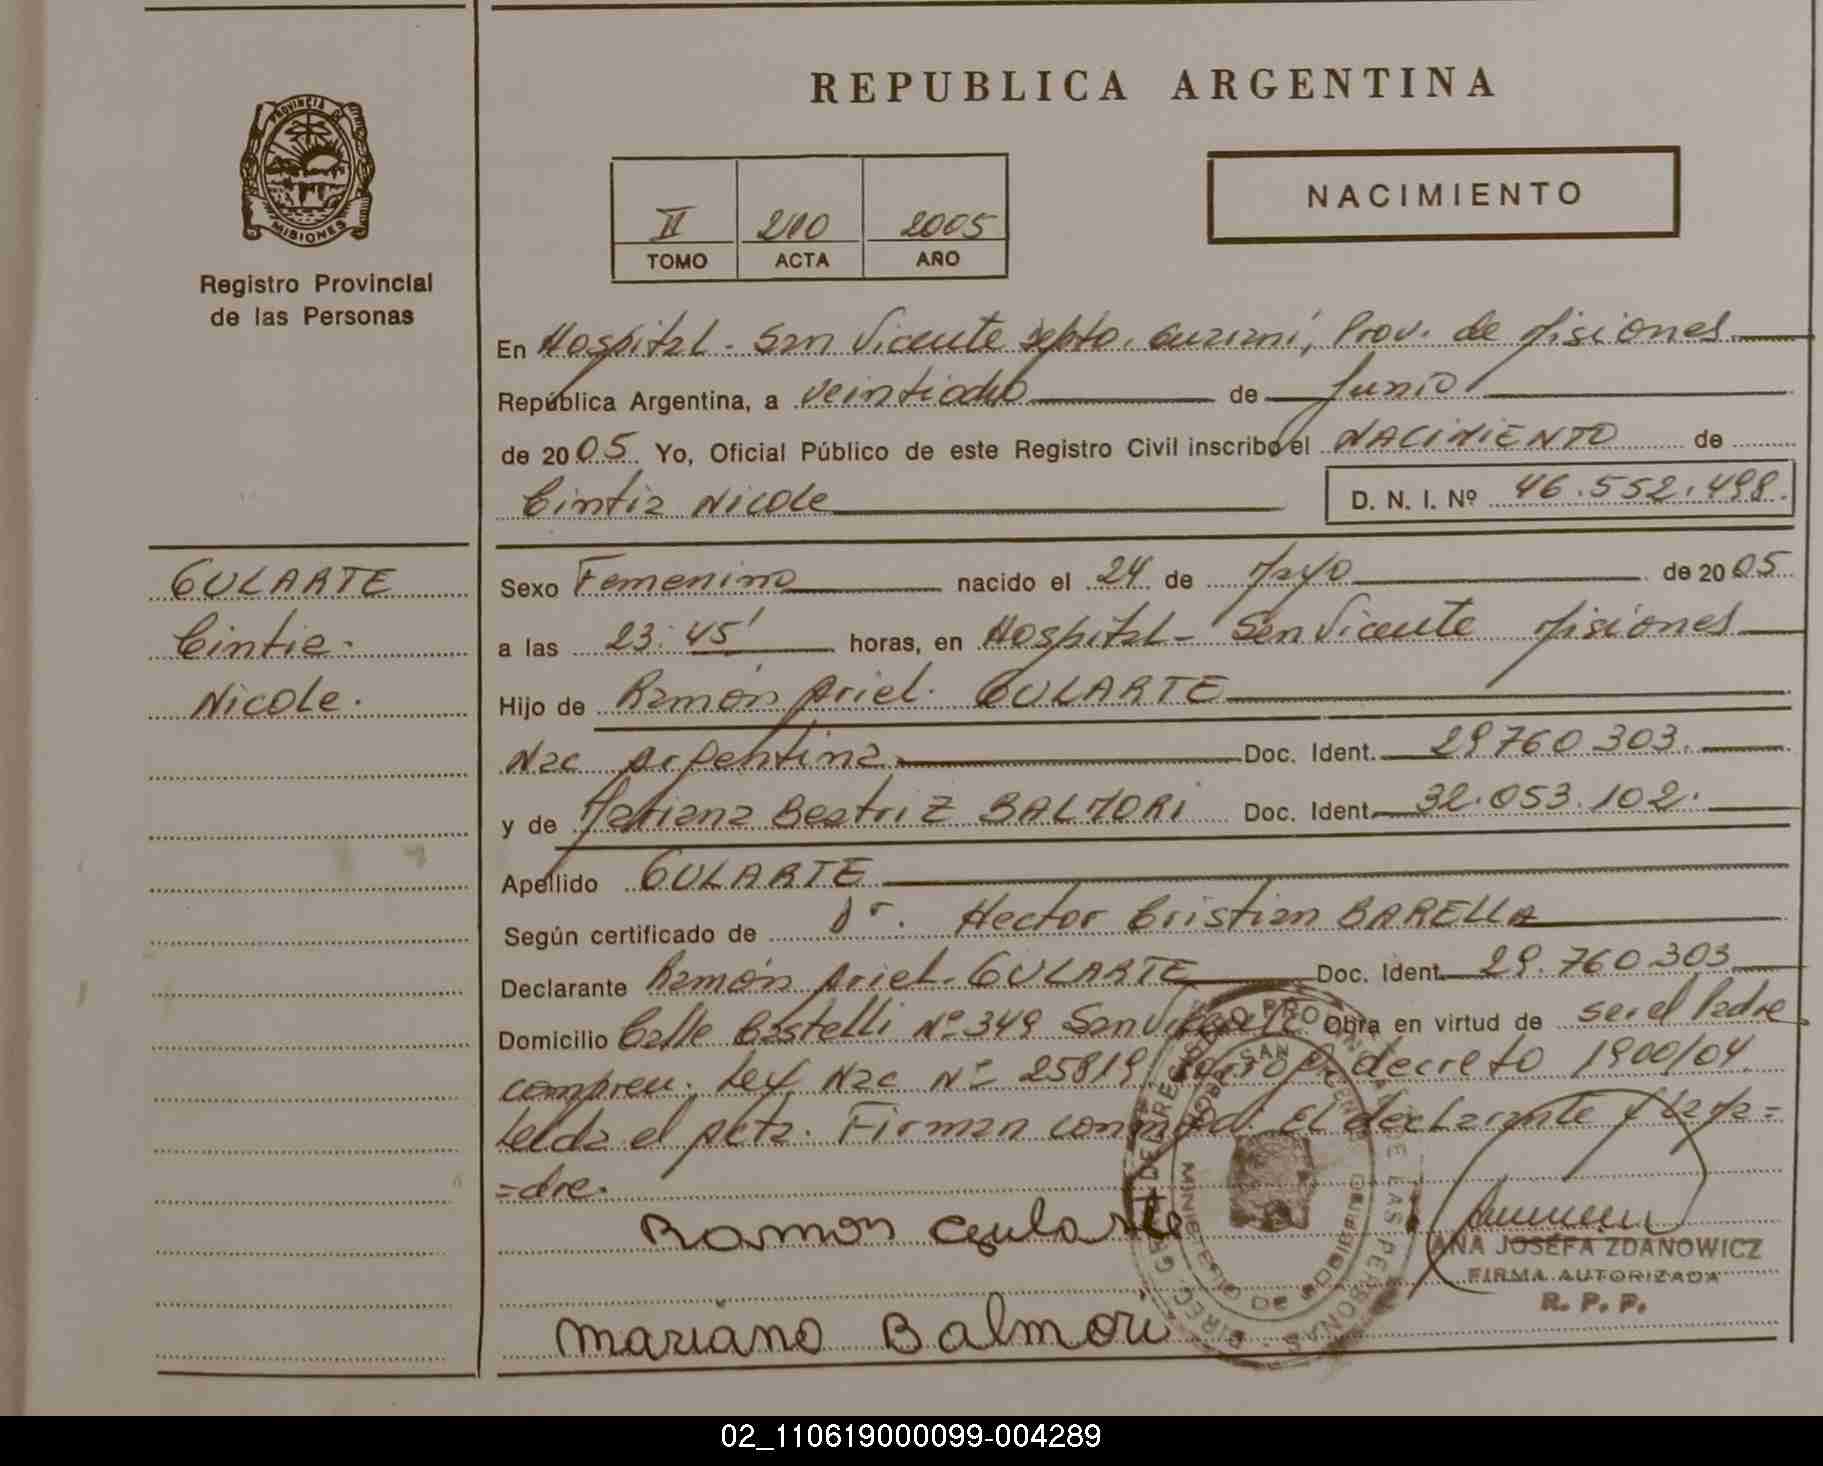 REPUBLICA ARGENTINA
PROVINCIA DE
MISIONES
Registro Provincial
de las Personas
II 210 2005
TOMO ACTA AÑO
NACIMIENTO
En Hospital - San Vicente Dpto. Guaraní, Prov. de Misiones
República Argentina, a veintiocho de Junio
de 2005 Yo, Oficial Público de este Registro Civil inscribo el NACIMIENTO de
Cintia Nicole D. N. I. Nº 46.552.498.
GULARTE
Cintia.
Nicole.
Sexo Femenino nacido el 24 de Mayo de 2005
a las 23:45' horas, en Hospital - San Vicente Misiones
Hijo de Ramón Ariel. GULARTE
Nac Argentina Doc. Ident. 29760303.
y de Mariana Beatriz BALMORI Doc. Ident. 32.053.102.
Apellido GULARTE
Según certificado de Dr. Hector Cristian BARELLA
Declarante Ramón Ariel. GULARTE Doc. Ident. 29.760303
Domicilio Calle Castelli Nº 349 San Vicente Obra en virtud de ser el Padre
compren. Ley Nac Nº 25819 decreto 1900/04.
Leida el Acta. Firman conmigo El declarante y la Ma=
=dre.
Ramon Gularte
Mariana Balmori
ANA JOSEFA ZDANOWICZ
FIRMA AUTORIZADA
R. P. P.
DIREC. GRAL. DE REGISTRO PROVINCIAL DE LAS PERSONAS
MINISTERIO DE GOBIERNO
02_110619000099-004289